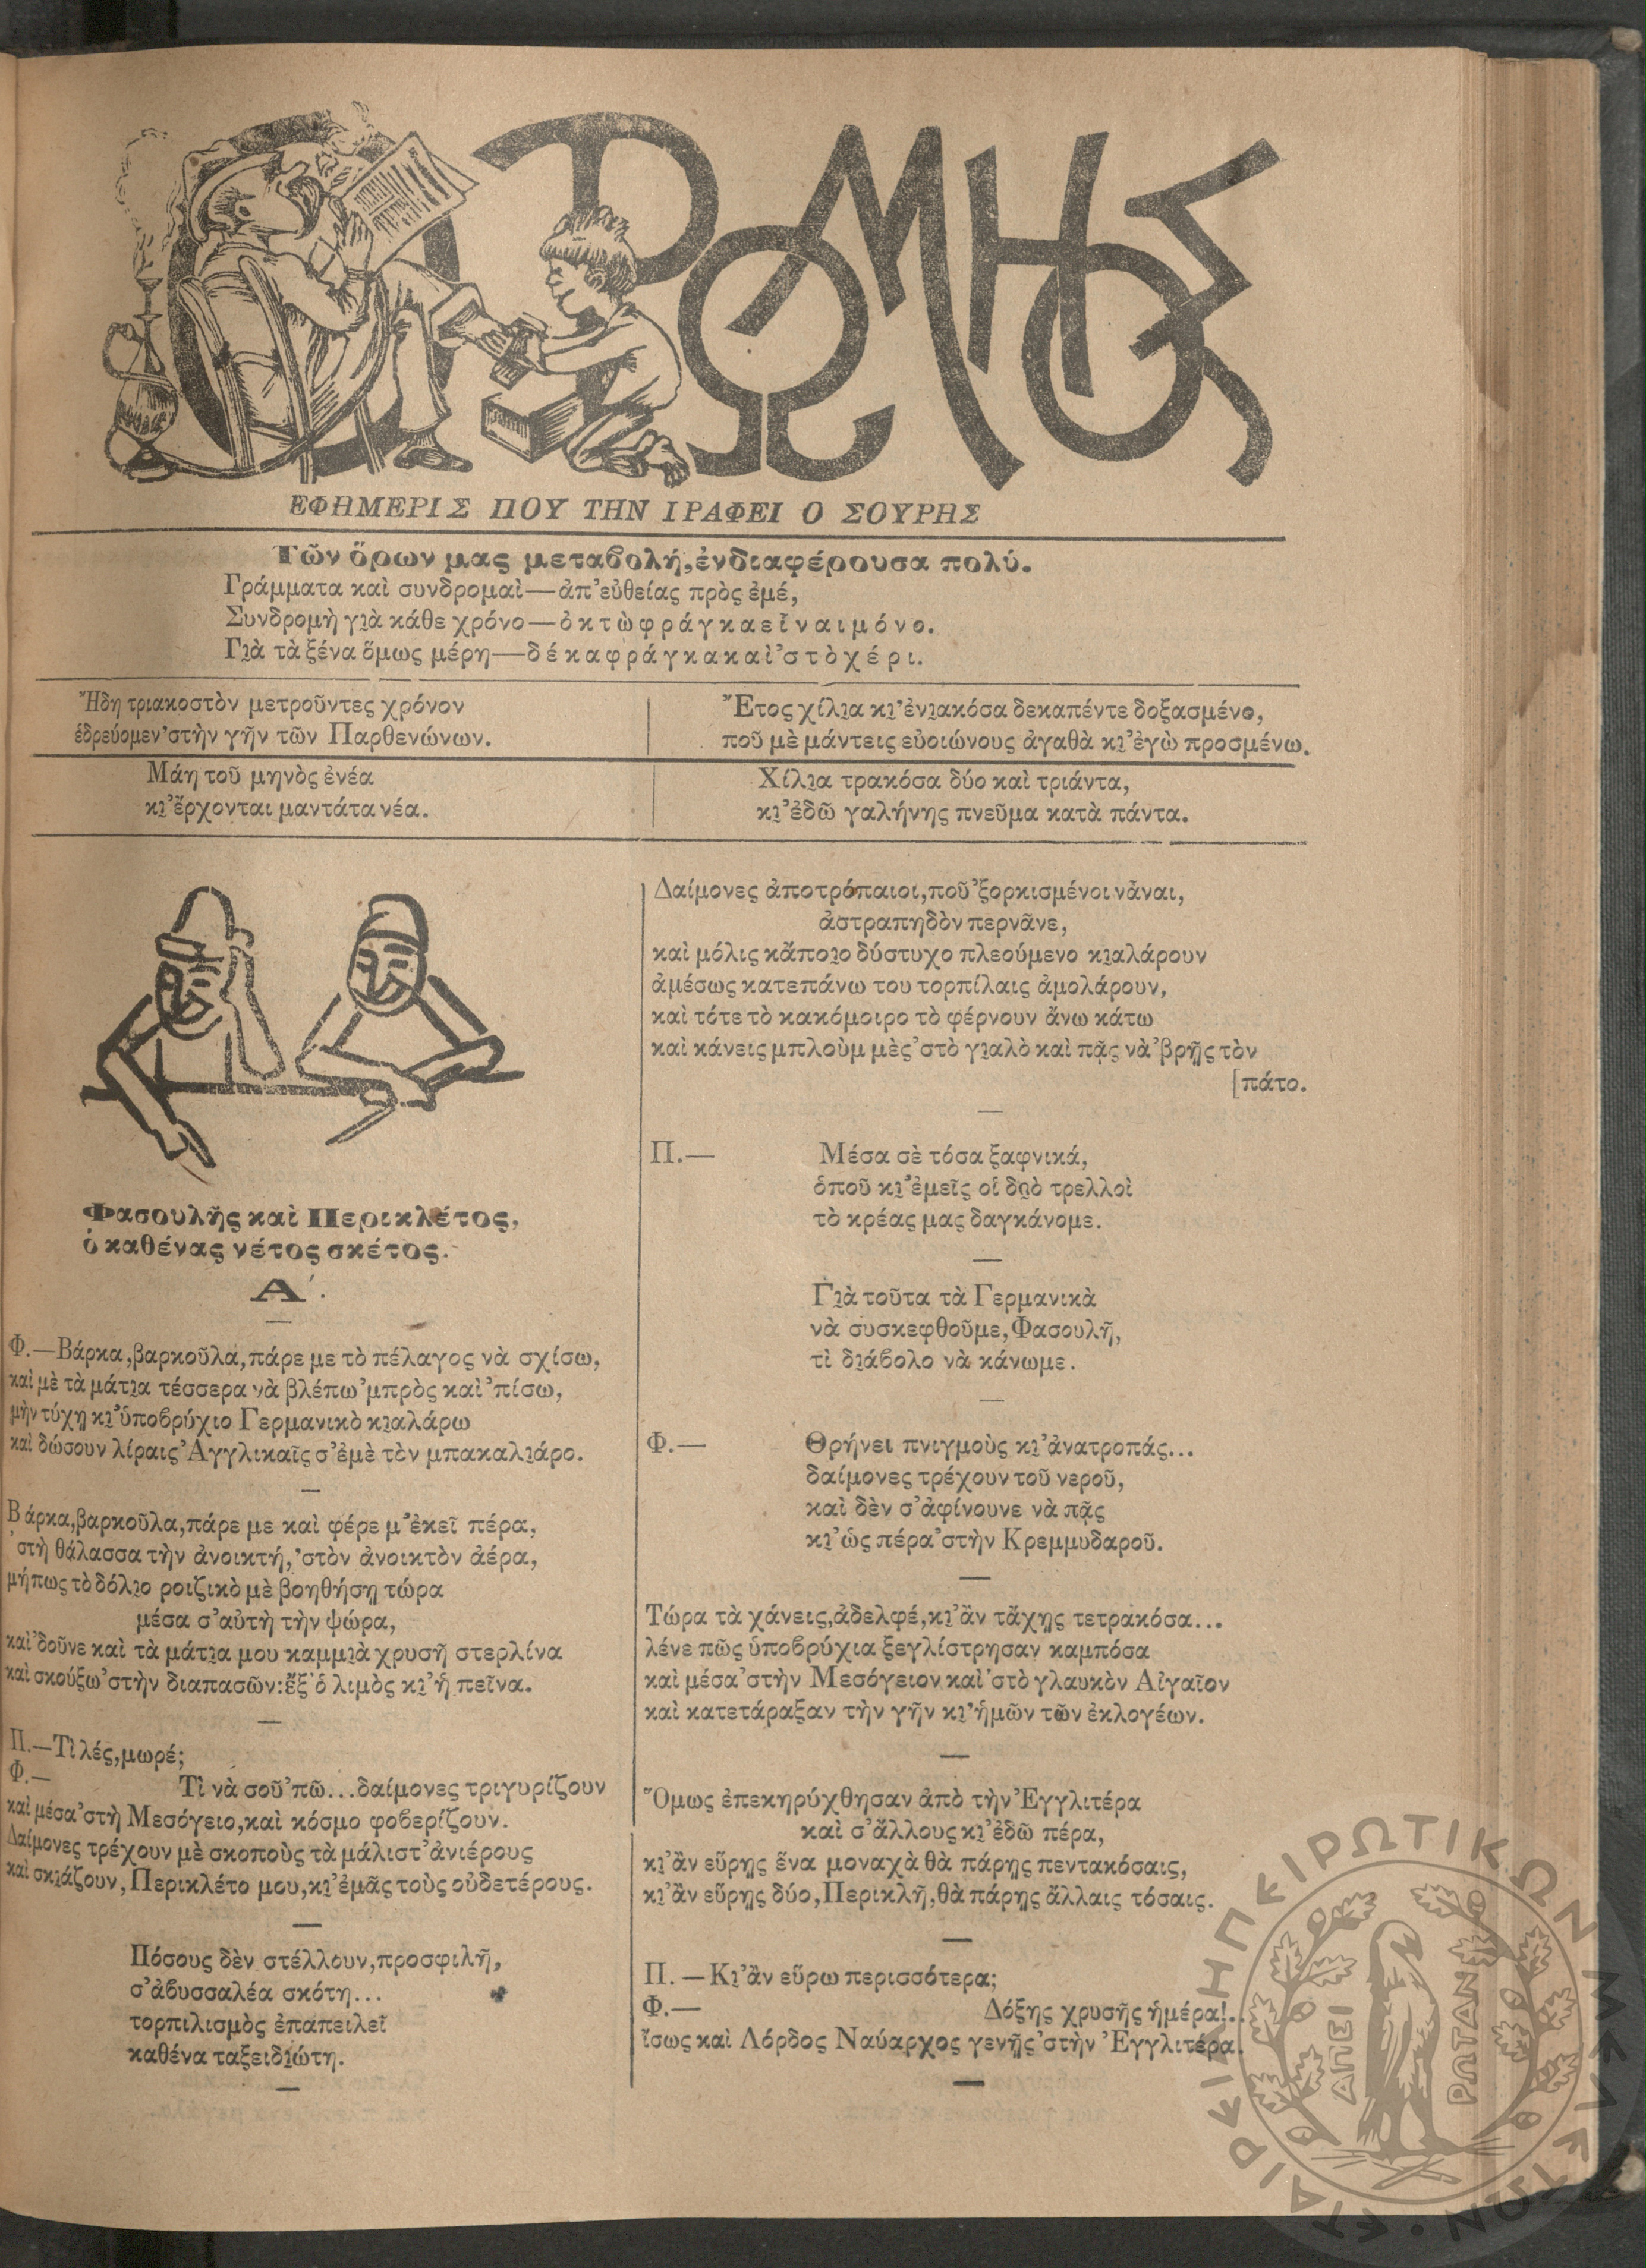 Ο ΡΩΜΗΟΣ
ΕΦΗΜΕΡΙΣ ΠΟΥ ΤΗΝ ΓΡΑΦΕΙ Ο ΣΟΥΡΗΣ
Τῶν ὅρων μας μεταβολή, ἐνδιαφέρουσα πολύ.
Γράμματα καὶ συνδρομαὶ—ἀπ' εὐθείας πρὸς ἐμέ,
Συνδρομὴ γιὰ κάθε χρόνο—ὀκτὼ φράγκα εἶναι μόνο.
Γιὰ τὰ ξένα ὅμως μέρη—δέκα φράγκα καὶ 'στὸ χέρι.
Ἤδη τριακοστὸν μετροῦντες χρόνον
ἑδρεύομεν 'στὴν γῆν τῶν Παρθενώνων.
Ἔτος χίλια κι' ἐνιακόσα δεκαπέντε δοξασμένο,
ποῦ μὲ μάντεις εὐοιώνους ἀγαθὰ κι' ἐγὼ προσμένω.
Μάη τοῦ μηνὸς ἐνέα
κι' ἔρχονται μαντάτα νέα.
Χίλια τρακόσα δύο καὶ τριάντα,
κι' ἐδῶ γαλήνης πνεῦμα κατὰ πάντα.
Φασουλῆς καὶ Περικλέτος,
ὁ καθένας νέτος σκέτος.
Α'.
Φ.—Βάρκα, βαρκοῦλα, πάρε με τὸ πέλαγος νὰ σχίσω,
καὶ μὲ τὰ μάτια τέσσερα νὰ βλέπω 'μπρὸς καὶ 'πίσω,
μὴν τύχῃ κι' ὑποβρύχιο Γερμανικὸ κιαλάρω
καὶ δώσουν λίραις Ἀγγλικαῖς σ' ἐμὲ τὸν μπακαλιάρο.
Βάρκα, βαρκοῦλα, πάρε με καὶ φέρε μ' ἐκεῖ πέρα,
'στὴ θάλασσα τὴν ἀνοικτή, 'στὸν ἀνοικτὸν ἀέρα,
μήπως τὸ δόλιο ροιζικὸ μὲ βοηθήσῃ τώρα
μέσα σ' αὐτὴ τὴν ψώρα,
καὶ 'δοῦνε καὶ τὰ μάτια μου καμμιὰ χρυσῆ στερλίνα
καὶ σκούξω 'στὴν διαπασῶν: ἔξ' ὁ λιμὸς κι' ἡ πεῖνα.
Π.—Τὶ λές, μωρέ;
Φ.— Τὶ νὰ σοῦ 'πῶ... δαίμονες τριγυρίζουν
καὶ μέσα 'στὴ Μεσόγειο, καὶ κόσμο φοβερίζουν.
Δαίμονες τρέχουν μὲ σκοποὺς τὰ μάλιστ' ἀνιέρους
καὶ σκιάζουν, Περικλέτο μου, κι' ἐμᾶς τοὺς οὐδετέρους.
Πόσους δὲν στέλλουν, προσφιλῆ,
σ' ἀβυσσαλέα σκότη...
τορπιλισμὸς ἐπαπειλεῖ
καθένα ταξειδιώτη.
Δαίμονες ἀποτρόπαιοι, ποῦ 'ξορκισμένοι νᾆναι,
ἀστραπηδὸν περνᾶνε,
καὶ μόλις κᾄποιο δύστυχο πλεούμενο κιαλάρουν
ἀμέσως κατεπάνω του τορπίλαις ἀμολάρουν,
καὶ τότε τὸ κακόμοιρο τὸ φέρνουν ἄνω κάτω
καὶ κάνεις μπλοὺμ μὲς 'στὸ γιαλὸ καὶ πᾷς νὰ 'βρῇς τὸν
[πάτο.
Π.— Μέσα σὲ τόσα ξαφνικά,
ὁποῦ κι' ἐμεῖς οἱ δυὸ τρελλοὶ
τὸ κρέας μας δαγκάνομε.
Γιὰ τοῦτα τὰ Γερμανικὰ
νὰ συσκεφθοῦμε, Φασουλῆ,
τὶ διάβολο νὰ κάνωμε.
Φ.— Θρήνει πνιγμοὺς κι' ἀνατροπάς...
δαίμονες τρέχουν τοῦ νεροῦ,
καὶ δὲν σ' ἀφίνουνε νὰ πᾷς
κι' ὡς πέρα 'στὴν Κρεμμυδαροῦ.
Τώρα τὰ χάνεις, ἀδελφέ, κι' ἂν τἄχῃς τετρακόσα...
λένε πῶς ὑποβρύχια ξεγλίστρησαν καμπόσα
καὶ μέσα 'στὴν Μεσόγειον καὶ 'στὸ γλαυκὸν Αἰγαῖον
καὶ κατετάραξαν τὴν γῆν κι' ἡμῶν τῶν ἐκλογέων.
Ὅμως ἐπεκηρύχθησαν ἀπὸ τὴν Ἐγγλιτέρα
καὶ σ' ἄλλους κι' ἐδῶ πέρα,
κι' ἂν εὕρῃς ἕνα μοναχὰ θὰ πάρῃς πεντακόσαις,
κι' ἂν εὕρῃς δύο, Περικλῆ, θὰ πάρῃς ἄλλαις τόσαις.
Π.—Κι' ἂν εὕρω περισσότερα;
Φ.— Δόξης χρυσῆς ἡμέρα!..
ἴσως καὶ Λόρδος Ναύαρχος γενῇς 'στὴν Ἐγγλιτέρα.
ΕΤΑΙΡΕΙΑ ΗΠΕΙΡΩΤΙΚΩΝ ΜΕΛΕΤΩΝ
ΑΠΕΙ
ΡΩΤΑΝ